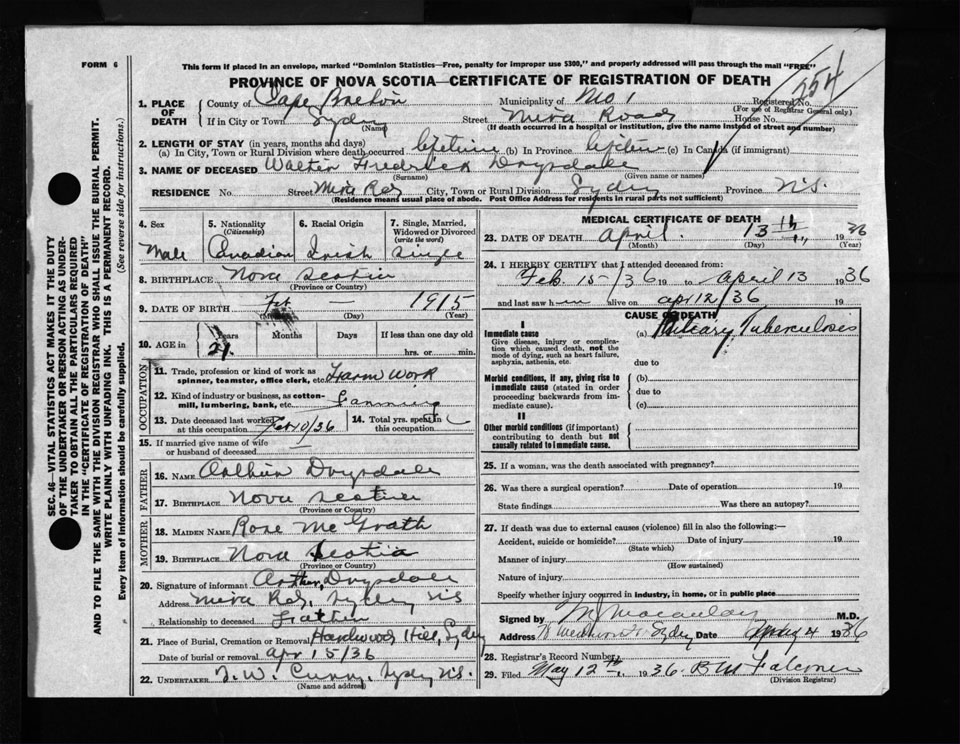 FORM 6
This form if placed in an envelope, marked "Dominion Statistics—Free, penalty for improper use $300," and properly addressed will pass through the mail "FREE"
PROVINCE OF NOVA SCOTIA—CERTIFICATE OF REGISTRATION OF DEATH
254
1. PLACE OF DEATH { County of Cape Breton Municipality of No 1 Registered No. (For use of Registrar General only)
If in City or Town Sydney (Name) Street Mira Road House No.
(If death occurred in a hospital or institution, give the name instead of street and number)
2. LENGTH OF STAY (in years, months and days)
(a) In City, Town or Rural Division where death occurred lifetime (b) In Province lifetime (c) In Canada (if immigrant)
3. NAME OF DECEASED Walter Frederick Drysdale
(Surname) (Given name or names)
RESIDENCE No. Street Mira Rd, City, Town or Rural Division Sydney Province N.S.
(Residence means usual place of abode. Post Office Address for residents in rural parts not sufficient)
4. Sex Male
5. Nationality (Citizenship) Canadian
6. Racial Origin Irish
7. Single, Married, Widowed or Divorced (write the word) Single
8. BIRTHPLACE Nova Scotia
(Province or Country)
9. DATE OF BIRTH Feb 1915
(Day) (Year)
10. AGE in Years Months Days If less than one day old
21 hrs. or min.
OCCUPATION
11. Trade, profession or kind of work as spinner, teamster, office clerk, etc. Farm Work
12. Kind of industry or business, as cotton-mill, lumbering, bank, etc. Farming
13. Date deceased last worked at this occupation 10/36
14. Total yrs. spent in this occupation
15. If married give name of wife or husband of deceased
FATHER
16. NAME Arthur Drysdale
17. BIRTHPLACE Nova Scotia
(Province or Country)
MOTHER
18. MAIDEN NAME Rose McGrath
19. BIRTHPLACE Nova Scotia
(Province or Country)
20. Signature of informant Arthur Drysdale
Address Mira Rd, Sydney NS
Relationship to deceased Father
21. Place of Burial, Cremation or Removal Hardwood Hill, Sydney
Date of burial or removal Apr 15/36
22. UNDERTAKER Sydney N.S.
(Name and address)
MEDICAL CERTIFICATE OF DEATH
23. DATE OF DEATH April 13th 1936
(Month) (Day) (Year)
24. I HEREBY CERTIFY that I attended deceased from:
Feb. 15/36 19 to April 13 1936
and last saw him alive on apr 12/36
CAUSE OF DEATH
I
Immediate cause (a) Miliary Tuberculoses
Give disease, injury or complication which caused death, not the mode of dying, such as heart failure, asphyxia, asthenia, etc. due to
Morbid conditions, if any, giving rise to immediate cause (stated in order proceeding backwards from immediate cause). (b)
due to
(c)
II
Other morbid conditions (if important) contributing to death but not causally related to immediate cause.
25. If a woman, was the death associated with pregnancy?
26. Was there a surgical operation? Date of operation 19
State findings Was there an autopsy?
27. If death was due to external causes (violence) fill in also the following:—
Accident, suicide or homicide? Date of injury 19
(State which)
Manner of injury
(How sustained)
Nature of injury
Specify whether injury occurred in industry, in home, or in public place
Signed by M Macaulay M.D.
Address Sydney Date May 4 1936
28. Registrar's Record Number
29. Filed May 12th, 1936. B M Falconer
(Division Registrar)
SEC. 46—VITAL STATISTICS ACT MAKES IT THE DUTY
OF THE UNDERTAKER OR PERSON ACTING AS UNDER-
TAKER TO OBTAIN ALL THE PARTICULARS REQUIRED
IN THE "CERTIFICATE OF REGISTRATION OF DEATH"
AND TO FILE THE SAME WITH THE DIVISION REGISTRAR WHO SHALL ISSUE THE BURIAL PERMIT.
WRITE PLAINLY WITH UNFADING INK. THIS IS A PERMANENT RECORD.
Every item of information should be carefully supplied. (See reverse side for instructions.)